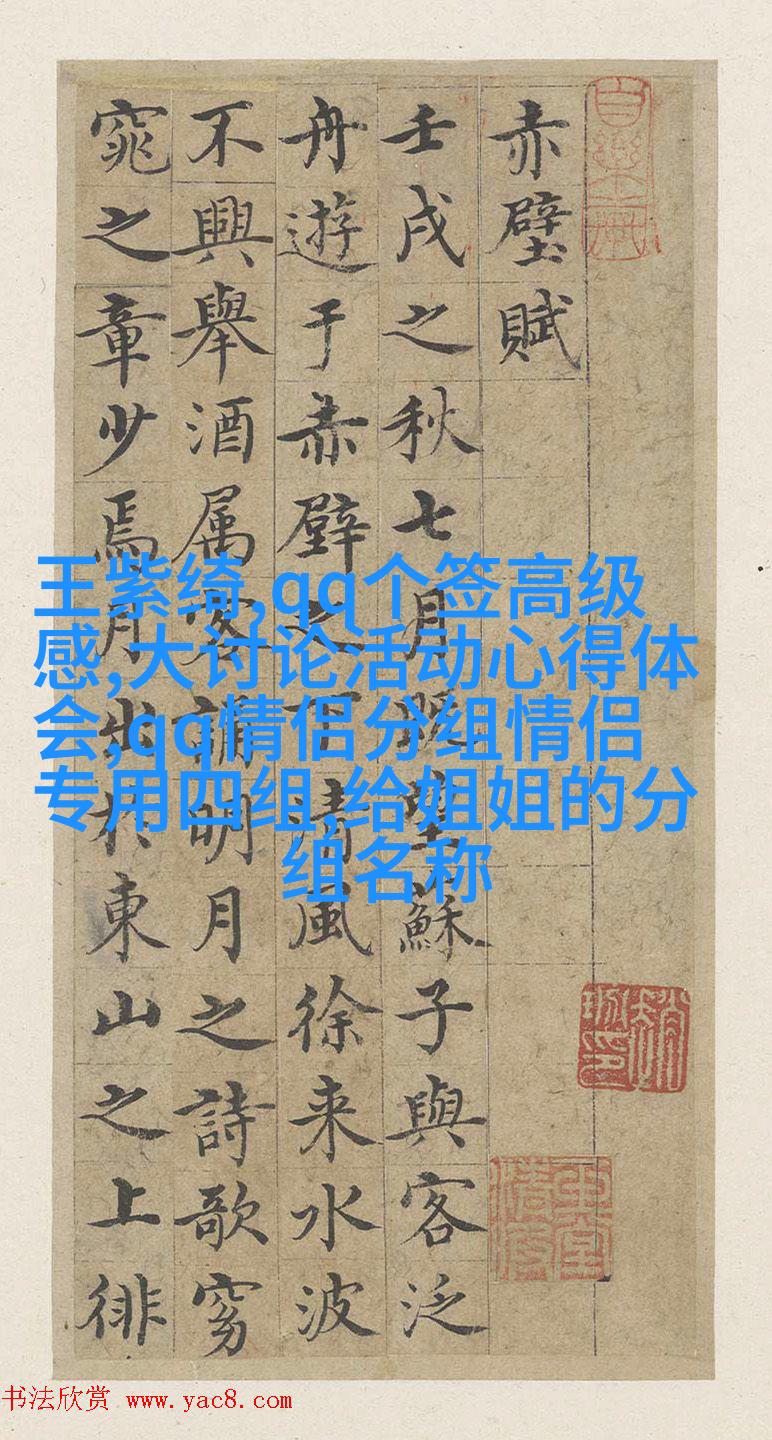 赤壁賦
壬戌之秋七月既望蘇子與客泛
舟遊于赤壁之下清風徐来水波
不興舉酒属客誦明月之詩歌窈
窕之章少焉月出於東山之上徘
王紫绮,qq个签高级
感,大讨论活动心得体
会,qq情侣分组情侣
专用四组,给姐姐的分
组名称
书法欣赏 www.yac8.com